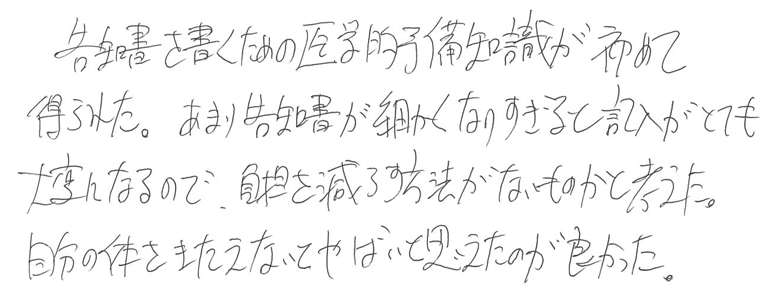 告知書を書くための医学的予備知識が初めて
得られた。あまり告知書が細かくなりすぎると記入がとても
大変になるので、負担を減らす方法がないものかと考えた。
自分の体をきたえないとやばいと思えたのが良かった。